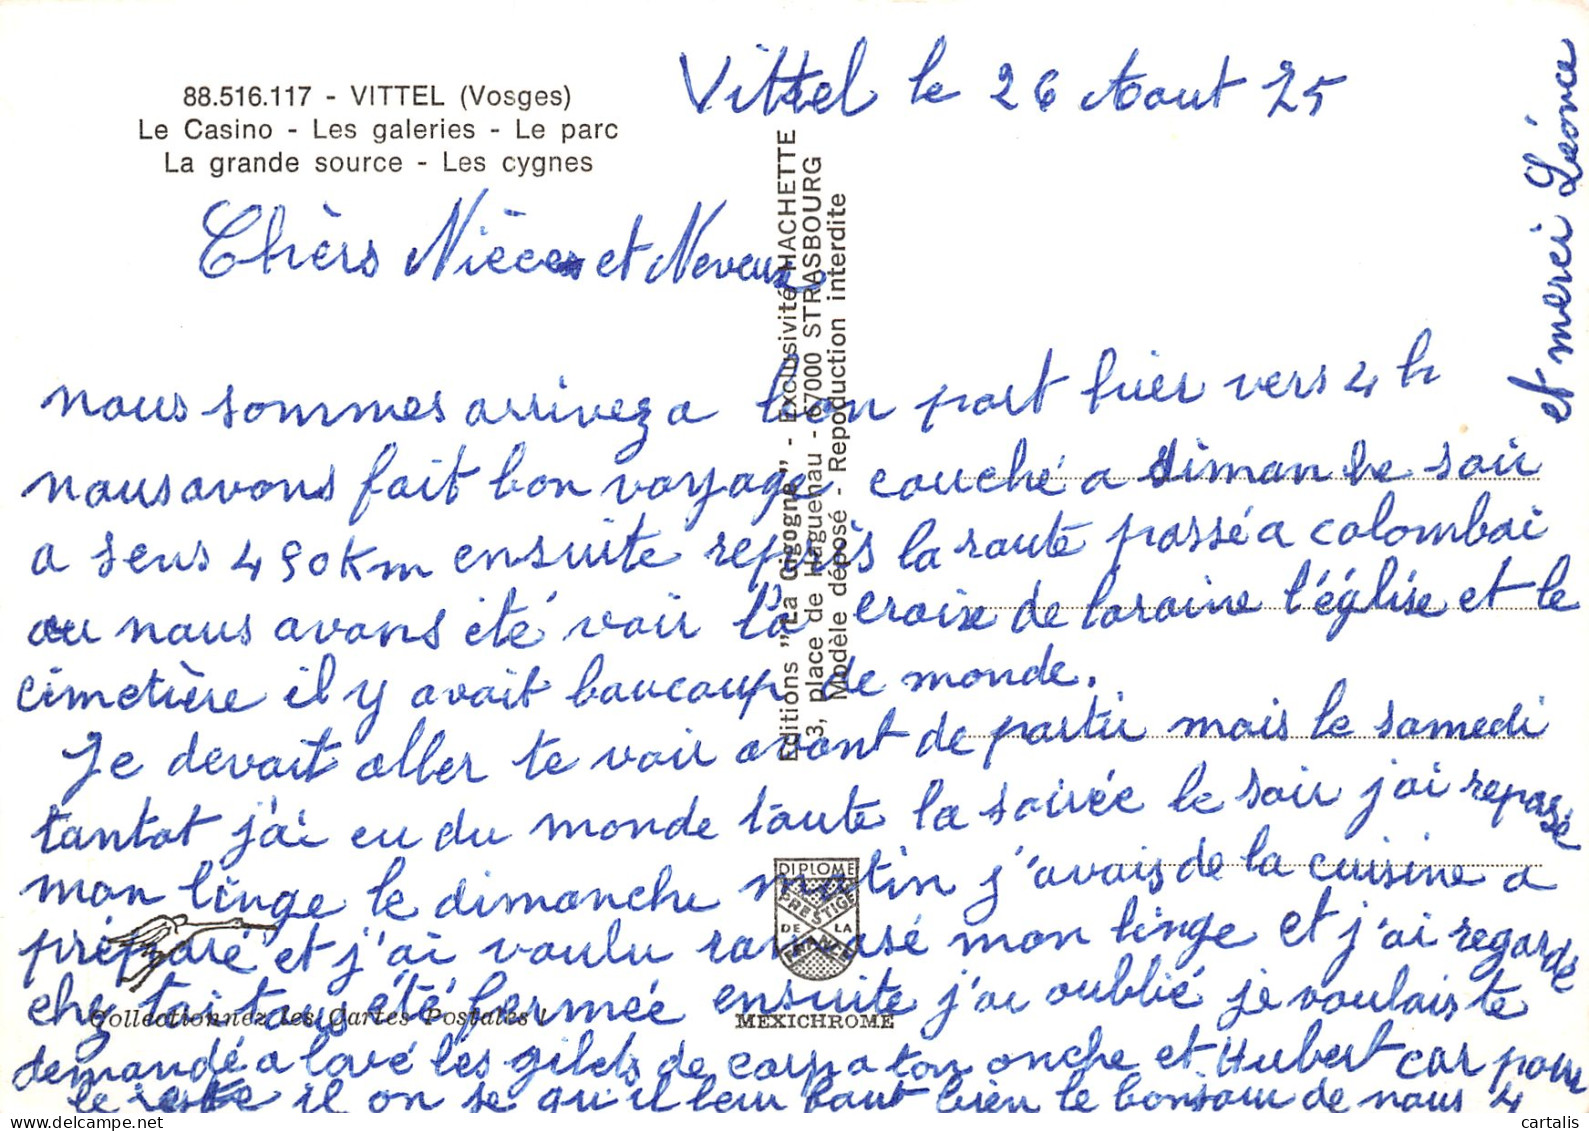 88.516.117 - VITTEL (Vosges)
Le Casino - Les galeries - Le parc
La grande source - Les cygnes
Vittel le 26 Aout 75
Chèrs Nièces et Neveux
nous sommes arrivez a bon port hier vers 4 h
nous avons fait bon voyage couché a dimanche soir
a sens 490 Km ensuite repris la route passé a colombai
ou nous avons été voir la croix de loraine l'église et le
cimetière il y avait baucoup de monde.
Je devait aller te voir avant de partir mais le samedi
tantot j'ai eu du monde toute la soirée le soir j'ai repassé
mon linge le dimanche matin j'avais de la cuisine a
préparé et j'ai voulu ramassé mon linge et j'ai regardé
chez toi tous été fermée ensuite j'ai oublié je voulais te
demandé a lavé les gilets de corps a ton onche et Hubert car pour
le reste il on se qu'il leur faut bien le bonjour de nous 4
et merci Léonce
Editions "La Cigogne" - Exclusivité HACHETTE
3, place de Haguenau - 67000 STRASBOURG
Modèle déposé - Reproduction interdite
DIPLOME
PRESTIGE
DE LA
FRANCE
Collectionnez les Cartes Postales !
MEXICHROME
cartalis